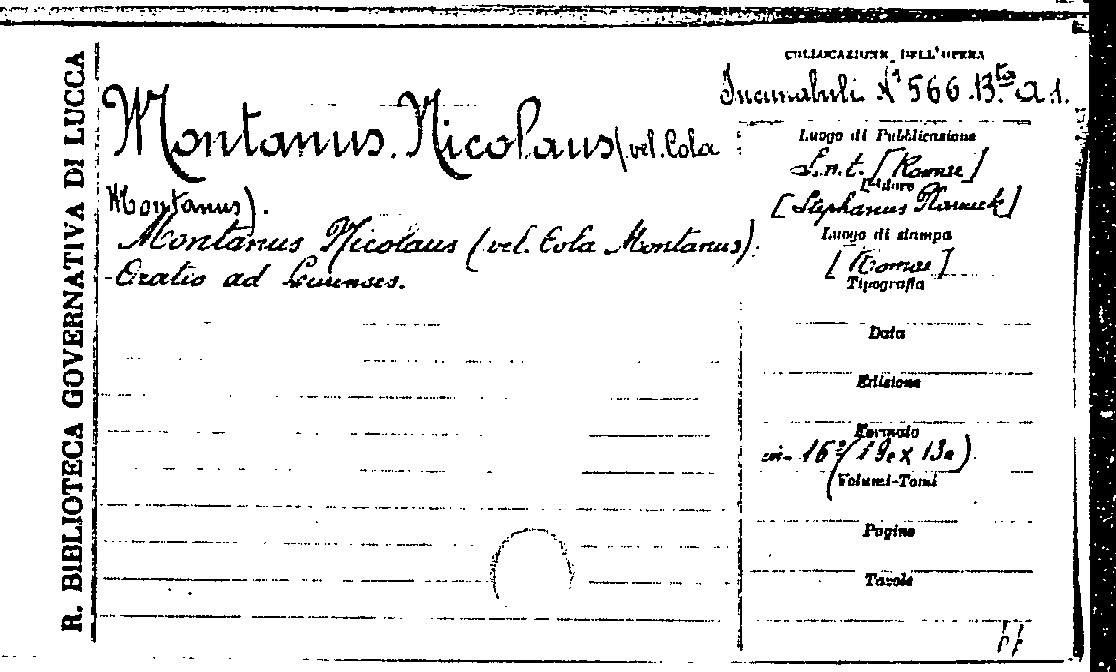 R. BIBLIOTECA GOVERNATIVA DI LUCCA
Montanus. Nicolaus (vel. Cola
Montanus).
Montanus Nicolaus (vel. Cola Montanus).
- Oratio ad Lucenses.
COLLOCAZIONE DELL'OPERA
Incunabuli N° 566. 13.ta a. 1.
Luogo di Pubblicazione
S.n.t. [Romae]
Editore
[Stephanus Planneck]
Luogo di stampa
[Romae]
Tipografia
Data
Edizione
Formato
in- 16° (19c x 13c).
Volumi-Tomi
Pagine
Tavole